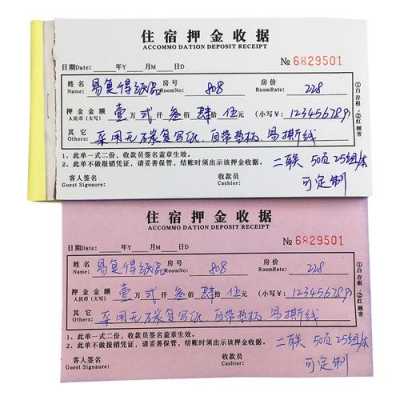 住宿押金收据
ACCOMMO DATION DEPOSIT RECEIPT
日期Date: 年Y 月M 日D № 6829501
姓名 Name: 易复得纸品 房号 Room: 808 房价 RoomRate: 228
押金金额 人民币(大写) 壹万贰仟叁佰肆拾伍元 (小写¥): 123456789
其它 Others: 采用无碳复写纸，自带垫板 易撕线
1、此单一式二份，收款员签名盖章生效。
2、此单不做报销凭证，请妥善保管，结账时须出示该押金收据。
客人签名 Guest Signaure: 收款员 Cashier:
二联 50页25组/本
可定制
①白存根 ②红顾客
住宿押金收据
ACCOMMO DATION DEPOSIT RECEIPT
日期Date: 年Y 月M 日D № 6829501
姓名 Name: 易复得纸品 房号 Room: 808 房价 RoomRate: 228
押金金额 人民币(大写) 壹万贰仟叁佰肆拾伍元 (小写¥): 123456789
其它 Others: 采用无碳复写纸，自带垫板 易撕线
1、此单一式二份，收款员签名盖章生效。
2、此单不做报销凭证，请妥善保管，结账时须出示该押金收据。
客人签名 Guest Signaure: 收款员 Cashier:
二联 50页25组/本
可定制
①白存根 ②红顾客